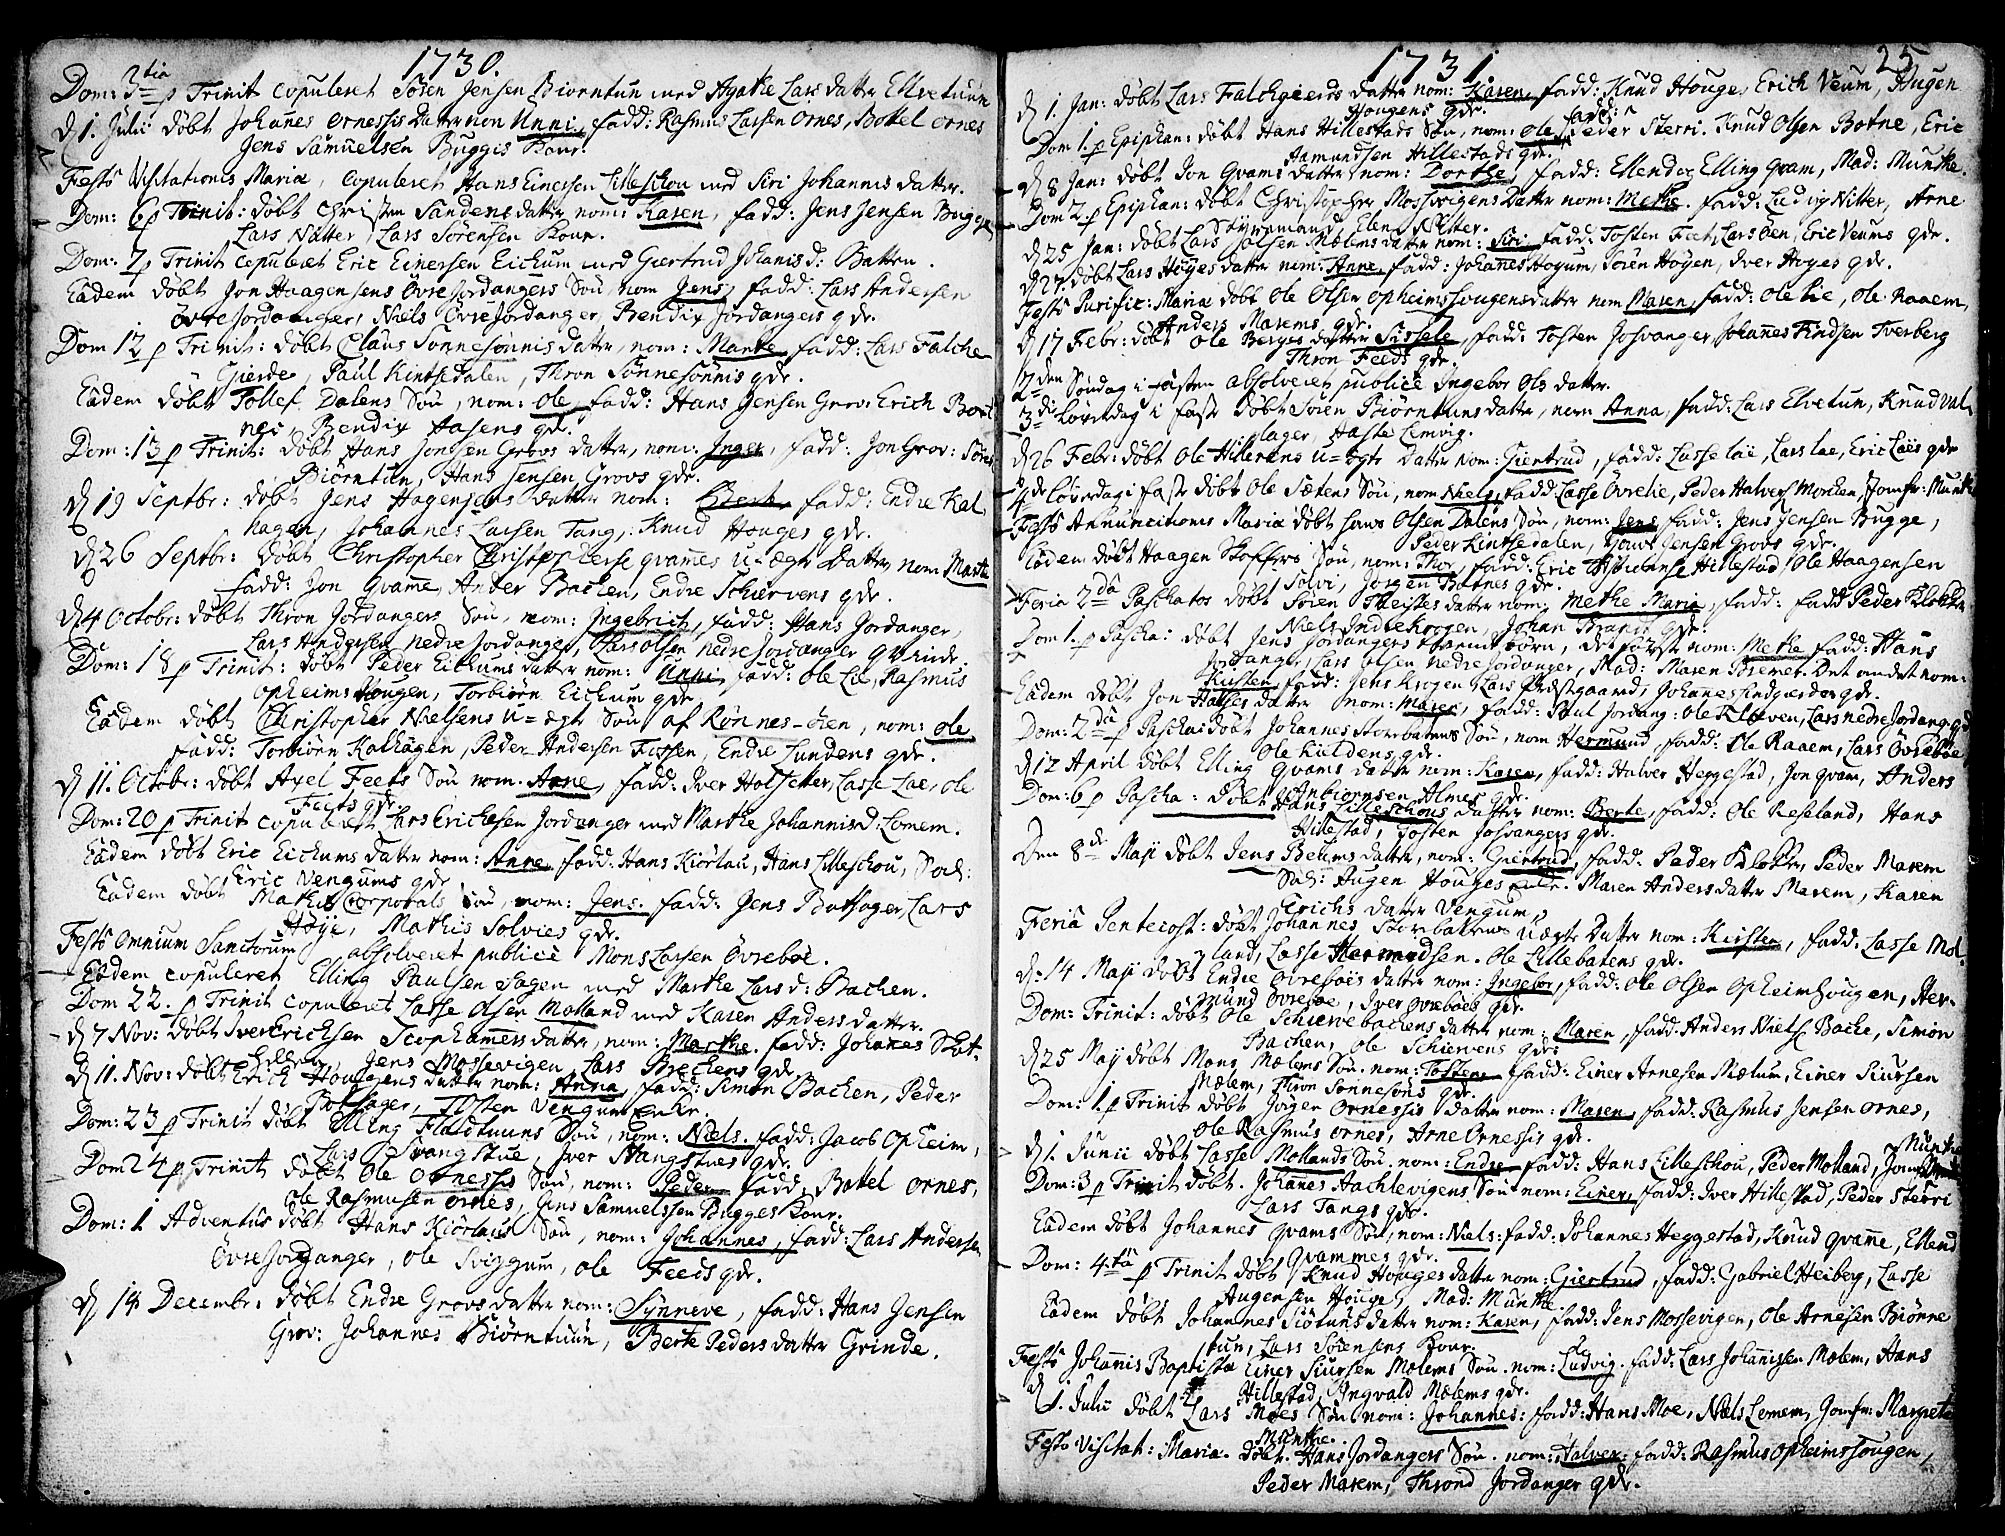 1730.
Dom: 3tia p Trinit copuleret Sören Jensen Biörntun med Agathe Lars datter Elvetuun
d 1. Julii döbt Johañes Ornessis datter nom Unni, fadd: Rasmus Larsen Ornes, Bottel Ornes
Jens Samuelsen Bugges Konr.
Festo Visitationis Mariæ, copuleret Hans Einersen Lilleschou med Siri Johannis datter.
Dom: 6 p Trinit: döbt Christen Sandens datter nom: Karen, fadd: Jens Jensen Bugge,
Lars Natter, Lars Sörensen Konr.
Dom: 7 p Trinit copuleret Eric Einersen Eickum med Giertrud Johanisd: Batten.
Eadem döbt Jon Haagensens Övre Jordangers Sön, nom Jens, fadd: Lars Andersen
Övre Jordanger, Niels Övre Jordanger, Bendix Jordangers qdr.
Dom 12 p Trinit: döbt Claus Sonnesonnis datter, nom: Marthe, fadd: Lars Falche
Gierde, Paul Kintsedalen, Thron Sonnesonnis qdr.
Eadem döbt Tollef Dalens Sön, nom: Ole, fadd: Hans Jensen Grov: Erich Bot
nes Bendix Hasens qdr.
Dom: 13 p Trinit: döbt Hans Jensen Grovs datter, nom: Inger, fadd: Jon Grov: Sören
Biörntun, Hans Jensen Grovs qdr.
d 19 Septbr: döbt Jens Hagensens datter nom: Berte fadd: Endre Kal
hagen, Johannes Larsen Tang, Knud Houges qdr.
d 26 Septbr: döbt Christopher Christophersens qvames u-ægte datter, nom: Marte
fadd: Jon Qvame, Anber Bachen, Endre Schiervens qdr.
d 4 Octobr: döbt Thron Jordangers Sön, nom: Ingebrict, fadd: Hans Jordanger,
Lars Andersen nedre Jordanger, Lars Olsen nedre Jordanger qvinde.
Dom: 18 p Trinit: döbt Peder Eickums datter nom: Unni, fadd: Ole Lie, Rasmus
Opheims Hougen, Torbiörn Eickum qdr.
Eadem döbt Christopher Nielsens u-ægt Sön af Rönnes-öien, nom: Ole
fadd: Torbiörn Kalhagen, Peder Andersen Fossen, Endre Lundens qdr.
d 11. Octobr: döbt Axel Feets Sön nom: Arne, fadd: Iver Holsetter, Lasse Lae, Ole
Feets qdr.
Dom: 20 p Trinit copuleret Lars Erichsen Jordanger med Marthe Johannisd: Lomem.
Eadem döbt Eric Eickums datter nom: Anne, fadd: Hans Kiörlau, Hans Lilleschou, Sod:
Eric Vengums qdr.
Eadem döbt Mathis Corporals Sön, nom: Jens. fadd: Jens Bothager, Lars
Höye, Mathis Solvies qdr.
Festo Omnium Sanctorum absolveret publice Mons Larsen Övreböe.
Eadem copuleret Elling Paulsen Hagen med Marthe Lars d: Bachen.
Dom 22. p Trinit copuleret Lasse Olsen Molland med Karen Anders datter.
d 7 Nov: döbt Iver Erichsen Scophamers datter, nom: Marthe. fadd: Johanes Skot-
Jens Mossevigen, Lars Brechens qdr.
d 11. Nov: döbt Erich Hougens datter nom: Anna, fadd: Simon Bachen, Peder
Bothager, Tosten Vengums Enke.
Dom: 23 p Trinit döbt Elling Flaetuuns Sön, nom: Niels. fadd: Jacob Opheim,
Lars Svangstue, Iver Stangstues qdr.
Dom 24 p Trinit döbt Ole Ornessis Sön, nom: Peder fadd Bottel Ornes,
Ole Rasmusen Ornes, Jens Samuelssen Bugges Konr.
Dom: 1 Adventus döbt Hans Kiörlaus Sön, nom: Johannes, fadd: Lars Andersen
Övre Jordanger, Ole Sviggum, Ole Feeds qdr.
d 14 Decembr: döbt Endre Grovs datter nom: Synneve, fadd: Hans Jensen
Grov: Johannes Biörntuun, Berte Peders datter Grinde.
1731
25
d 1. Jan: döbt Lars Falchgierds datter nom: Karen, fadd: Knud Houge, Erich Veum, Hugen
Hougens qdr.
Dom 1. p Epiphan: döbt Hans Hillestads Sön, nom: Ole, fadd: Peder Sterri. Knud Olsen Botne, Eric
Aamundsen Hillestads qdr.
d 8 Jan: döbt Jon Qvams datter nom: Dorthe, fadd: Ellend og Elling Qvam, Mad: Munthe.
Dom 2. p Epiphan: döbt Christopher Mossevigens datter nom: Methe. fadd: Ludvig Nitter, Arne
Söyrumand, Elen Nitter.
d 25 Jan: döbt Lars Joelsen Mælems datter nom: Siri, fadd: Tosten Feet, Lars Öen, Eric Veums qdr.
d 27. döbt Lars Höyes datter nom: Anne, fadd: Johañes Hoyum, Sören Höyen, Iver Höyes qdr.
Festo Purific: Mariæ döbt Ole Olsen Opheims Hougens datter nom Maren, fadd: Ole Lie, Ole Raaem,
Anders Marems qdr.
d 17 Febr: döbt Ole Berges datter Sissele, fadd: Tosten Josvanger, Johañes Findsen Tverberg
Thron Feeds qdr.
2den Söndag i fasten absolveret publice Ingebor Ols datter.
3di Löverdag i faste döbt Sören Biörntuns datter, nom Anna, fadd: Lars Elvetun, Knud Val
lager, Haste Lemvig.
d 26 Febr: döbt Ole Hillerens u-ægte datter nom: Giertrud, fadd: Lasse Lae, Lars Lae, Eric Laes qdr
4de Löverdag i faste döbt Ole Sætens Sön, nom Niels, fadd: Lasse Övrelie, Peder Halvers Morchen, Jomfr: Munthe
Festo Annuncitionis Mariæ döbt Hans Olsen Dalens Sön, nom: Jens, fadd: Jens Jensen Bugge,
Peder Kintsedalen, Jons Jensen Grovs qdr.
Eadem döbt Haagen Skoffters Sön, nom: Thor, fadd: Eric Hillestad, Ole Haagensen
Solvi, Jörgen Botnes qdr.
Feria 2da Paschatos döbt Sören Theistes datter nom: Methe Maria, fadd: fadd Peder Klokker
Niels Indtekrogen, Johan Brands qdr.
Dom 1. p Pascha: döbt Jens Jordangers börn, det förste nom: Methe fadd: Hans
Jordanger, Lars Olsen nedre Jordanger, Mad: Maren Boremet. Det andet nom:
Kirsten, fadd: Jens Krogen, Lars Prestgaard, Johañes Indgierdes qdr.
Eadem döbt Jon Hatses datter nom: Maren, fadd: Paul Jordang: Ole Kleven, Lars nedre Jordang: qdr
Dom: 2da p Pascha: döbt Johannes Storebatens Sön, nom Hermund, fadd: Ole Raaem, Lars Övreböe
Ole Kieldens qdr.
d 12 April döbt Elling Qvams datter nom: Karen, fadd: Halver Heggestad, Jon Qvam, Anders
Anbiörnsen Almes qdr.
Dom: 6 p Pascha: döbt Hans Lilleschous datter nom: Berte, fadd: Ole Neseland, Hans
Hillestad, Tosten Josvangers qdr.
Den 8de Maji döbt Jens Beums datter, nom: Giertrud, fadd: Peder Klokker, Peder Marem
Sod: Augen Houges Enke. Maren Anders datter Marem, Karen
Erichs datter Vengum,
Feria Pentecost: döbt Johannes Storebattens uægte datter nom: Kirsten, fadd: Lasse Mol-
land, Lasse Hermundsen. Ole Lillebatens qdr.
d: 14 Maji döbt Endre Övreböes datter nom: Ingebor, fadd: Ole Olsen Opheimhougen, Her-
mund Övreböe, Iver Övreböes qdr.
Dom: Trinit: döbt Ole Schiervebackens datter nom: Maren, fadd. Anders Niels. Bache, Simon
Bachen, Ole Schiervens qdr.
d 25 Maji döbt Mons Mælems Sön. nom: Tosten, fadd: Einer Arnesen Mælum, Einer Siursen
Mælem, Thron Sonnesons qdr.
Dom: 1. p Trinit döbt Jörgen Ornessis datter nom: Maren, fadd. Rasmus Jensen Ornes,
Ole Rasmus Ornes, Arne Ornessis qdr.
d 1. Junii döbt Lasse Mollands Sön. nom: Endre fadd: Hans Lilleschou, Peder Molland, Jomfr Munthe
Dom: 3 p Trinit döbt. Johañes Hachlevigens Sön nom: Einer, fadd: Iver Hillestad, Peder Sterri
Lars Tangs qdr.
Eadem döbt Johannes Qvams Sön, nom: Niels: fadd: Johannes Heggestad, Knud Qvame, Ellend
Qvammes qdr.
Dom: 4ta p Trinit döbt Knud Houges datter nom: Giertrud, fadd: Gabriel Heiberg, Lasse
Augensen Houge, Mad: Munthe.
Eadem döbt Johannes Siötuns datter nom: Karen, fadd: Jens Mossevigen, Ole Arnesen Biörne
tun, Lars Sörensens Konr.
Festo Johañis Baptistæ Einer Siursen Mælems Sön. nom: Ludvig. fadd: Lars Johañissen Mælem, Hans
Hillestad, Ingvald Mælems qdr.
d 1. Julii döbt Lars Moes Sön nom: Johannes: fadd: Hans Moe, Niels Lomem, Jomfr: Margrete
Munthe.
Festo Visitat: Mariæ. döbt. Hans Jordangers Sön. nom: Halver: fadd: Rasmus Opheimshougen,
Peder Marem, Thrond Jordanger qdr.